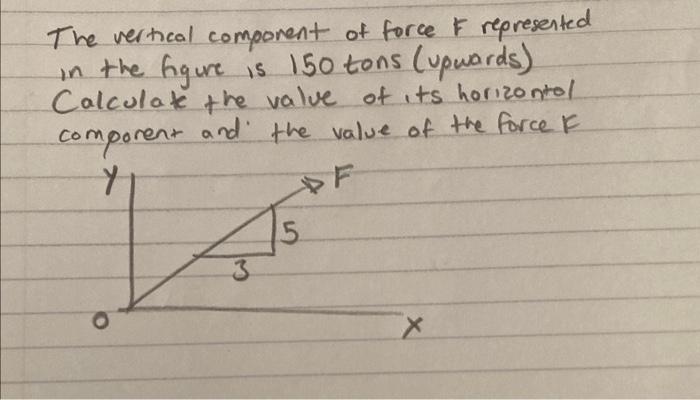 The vertical component of force F represented
in the figure is 150 tons (upwards)
Calculate the value of its horizontal
component and the value of the force F
Y
F
5
3
O
X